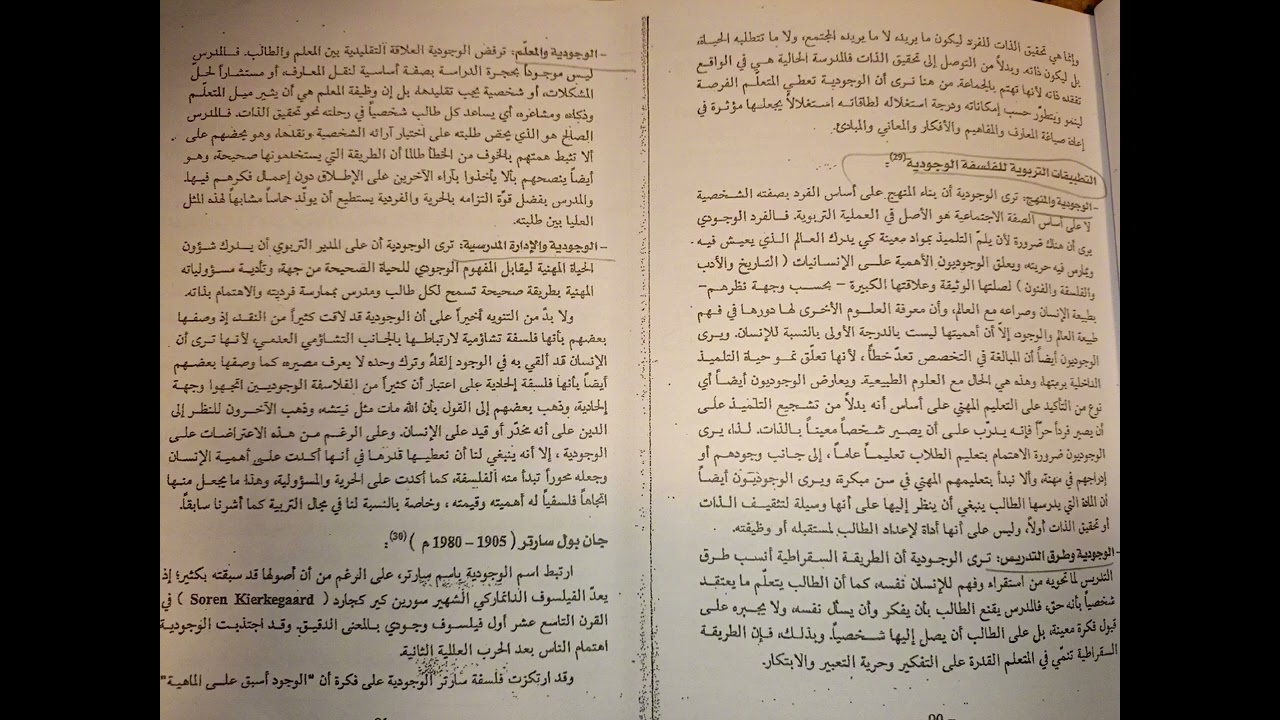 وإنما هي تحقيق الذات للفرد ليكون ما يريد، لا ما يريده المجتمع، ولا ما تتطلبه الحياة،
بل ليكون ذاته. وبدلاً من التوصل إلى تحقيق الذات فالمدرسة الحالية هي في الواقع
تفقده ذاته لأنها تهتم بالجماعة. من هنا نرى أن الوجودية تعطي المتعلّم الفرصة
لينمو ويتطوّر حسب إمكاناته ودرجة استغلاله لطاقاته استغلالاً يجعلها مؤثرة في
إعادة صياغة المعارف والمفاهيم والأفكار والمعاني والمبادئ.
التطبيقات التربوية للفلسفة الوجودية(29):
- الوجودية والمنهج: ترى الوجودية أن بناء المنهج على أساس الفرد بصفته الشخصية
لا على أساس الصفة الاجتماعية هو الأصل في العملية التربوية. فالفرد الوجودي
يرى أن هناك ضرورة لأن يلمّ التلميذ بمواد معينة كي يدرك العالم الذي يعيش فيه
ويمارس فيه حريته، ويعلق الوجوديون الأهمية على الإنسانيات ( التاريخ والأدب
والفلسفة والفنون ) لصلتها الوثيقة وعلاقتها الكبيرة – بحسب وجهة نظرهم –
بطبيعة الإنسان وصراعه مع العالم، وأن معرفة العلوم الأخرى لها دورها في فهم
طبيعة العالم والوجود، إلاّ أن أهميتها ليست بالدرجة الأولى بالنسبة للإنسان. ويرى
الوجوديون أيضاً أن المبالغة في التخصص تعدّ خطأ، لأنها تعلّق نمو حياة التلميذ
الداخلية برمتها، وهذه هي الحال مع العلوم الطبيعية. ويعارض الوجوديون أيضاً أي
نوع من التأكيد على التعليم المهني على أساس أنه بدلاً من تشجيع التلميذ على
أن يصير فرداً حرّاً فإنه يدرّب على أن يصير شخصاً معيناً بالذات. لذا، يرى
الوجوديون ضرورة الاهتمام بتعليم الطلاب تعليماً عاماً، إلى جانب وجودهم أو
إدراجهم في مهنة، وألا نبدأ بتعليمهم المهني في سن مبكرة، ويرى الوجوديون أيضاً
أن المادة التي يدرسها الطالب ينبغي أن ينظر إليها على أنها وسيلة لتثقيف الذات
أو تحقيق الذات أولاً، وليس على أنها أداة لإعداد الطالب لمستقبله أو وظيفته.
- الوجودية وطرق التدريس: ترى الوجودية أن الطريقة السقراطية أنسب طرق
التدريس لما تحويه من استقراء وفهم للإنسان نفسه، كما أن الطالب يتعلّم ما يعتقد
شخصياً بأنه حق، فالمدرس يقنع الطالب بأن يفكر وأن يسأل نفسه، ولا يجبره على
قبول فكرة معينة، بل على الطالب أن يصل إليها شخصياً. وبذلك، فإن الطريقة
السقراطية تنمّي في المتعلم القدرة على التفكير وحرية التعبير والابتكار.
- الوجودية والمعلّم: ترفض الوجودية العلاقة التقليدية بين المعلم والطالب. فالمدرس
ليس موجوداً بحجرة الدراسة بصفة أساسية لنقل المعارف، أو مستشاراً لحلّ
المشكلات، أو شخصية يجب تقليدها، بل إن وظيفة المعلم هي أن يثير ميل المتعلّم
وذكاءه ومشاعره، أي يساعد كل طالب شخصياً في رحلته نحو تحقيق الذات. فالمدرس
الصالح هو الذي يحض طلبته على اختبار آرائه الشخصية ونقدها، وهو يحضهم على
ألا تثبط همتهم بالخوف من الخطأ طالما أن الطريقة التي يستخدمونها صحيحة، وهو
أيضاً ينصحهم بألا يأخذوا بآراء الآخرين على الإطلاق دون إعمال فكرهم فيها.
والمدرس بفضل قوّة التزامه بالحرية والفردية يستطيع أن يولّد حماساً مشابهاً لهذه المثل
العليا بين طلبته.
- الوجودية والإدارة المدرسية: ترى الوجودية أن على المدير التربوي أن يدرك شؤون
الحياة المهنية ليقابل المفهوم الوجودي للحياة الصحيحة من جهة، وتأدية مسؤولياته
المهنية بطريقة صحيحة تسمح لكل طالب ومدرس بممارسة فرديته والاهتمام بذاته.
ولا بدّ من التنويه أخيراً على أن الوجودية قد لاقت كثيراً من النقد، إذ وصفها
بعضهم بأنها فلسفة تشاؤمية لارتباطها بالجانب التشاؤمي العدمي، لأنها ترى أن
الإنسان قد ألقي به في الوجود إلقاءً وترك وحده لا يعرف مصيره، كما وصفها بعضهم
أيضاً بأنها فلسفة إلحادية على اعتبار أن كثيراً من الفلاسفة الوجوديين اتجهوا وجهة
إلحادية، وذهب بعضهم إلى القول بأن الله مات مثل نيتشه، وذهب الآخرون للنظر إلى
الدين على أنه مخدّر أو قيد على الإنسان. وعلى الرغم من هذه الاعتراضات على
الوجودية ، إلا أنه ينبغي لنا أن نعطيها قدرها في أنها أكدت على أهمية الإنسان
وجعله محوراً تبدأ منه الفلسفة، كما أكدت على الحرية والمسؤولية، وهذا ما يجعل منها
اتجاهاً فلسفياً له أهميته وقيمته ، وخاصة بالنسبة لنا في مجال التربية كما أشرنا سابقاً.
جان بول سارتر ( 1905 – 1980 م )(30):
ارتبط اسم الوجودية باسم سارتر، على الرغم من أن أصولها قد سبقته بكثير؛ إذ
يعدّ الفيلسوف الدانماركي الشهير سورين كير كجارد ( Soren Kierkegaard ) في
القرن التاسع عشر أول فيلسوف وجودي بالمعنى الدقيق. وقد اجتذبت الوجودية
اهتمام الناس بعد الحرب العالمية الثانية.
وقد ارتكزت فلسفة سارتر الوجودية على فكرة أن "الوجود أسبق على الماهية"